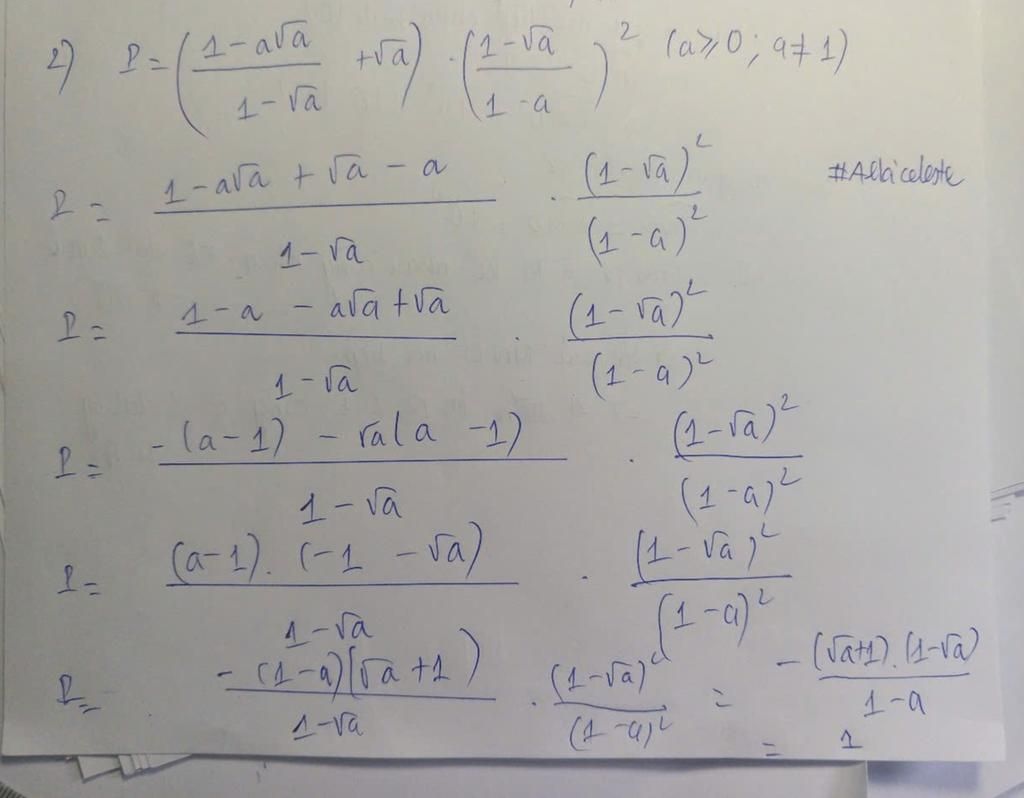 2) P = ( (1 - a√a)/(1 - √a) + √a ) · ( (1 - √a)/(1 - a) )² (a ≥ 0 ; a ≠ 1)
P = (1 - a√a + √a - a)/(1 - √a) · (1 - √a)²/(1 - a)² #Albiceleste
P = (1 - a - a√a + √a)/(1 - √a) · (1 - √a)²/(1 - a)²
P = (-(a - 1) - √a(a - 1))/(1 - √a) · (1 - √a)²/(1 - a)²
P = ((a - 1) . (-1 - √a))/(1 - √a) · (1 - √a)²/(1 - a)²
P = (-(1 - a)(√a + 1))/(1 - √a) · (1 - √a)²/(1 - a)² = -((√a + 1) . (1 - √a))/(1 - a)
= 1